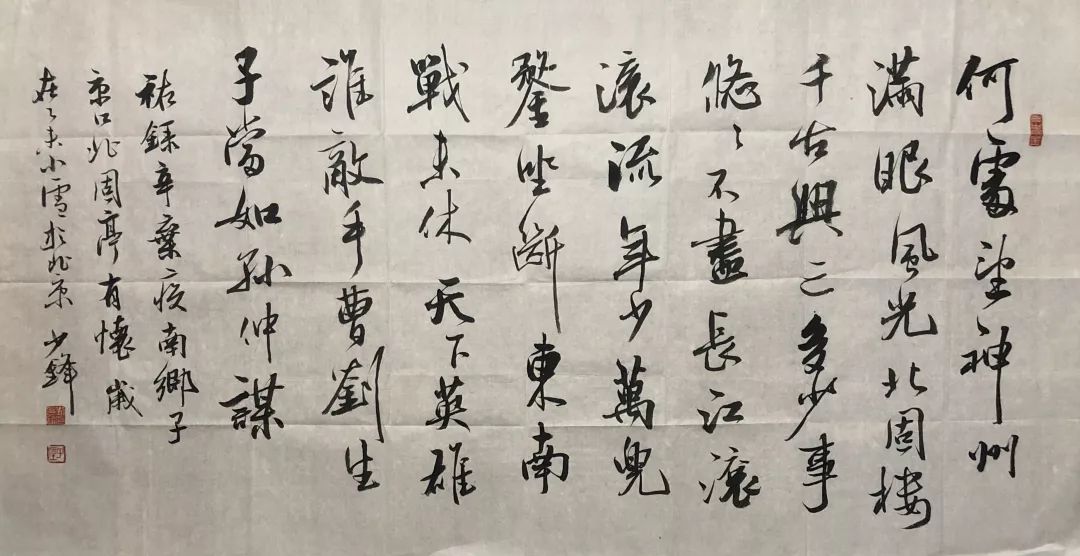 何處望神州
滿眼風光北固樓
千古興亡多少事
悠々不盡長江滾
滾流年少萬兜
鍪坐斷東南
戰未休天下英雄
誰敵手曹劉生
子當如孫仲謀
錄辛棄疾南鄉子
京口北固亭有懷歲
在乙未小雪於北京 少鋒